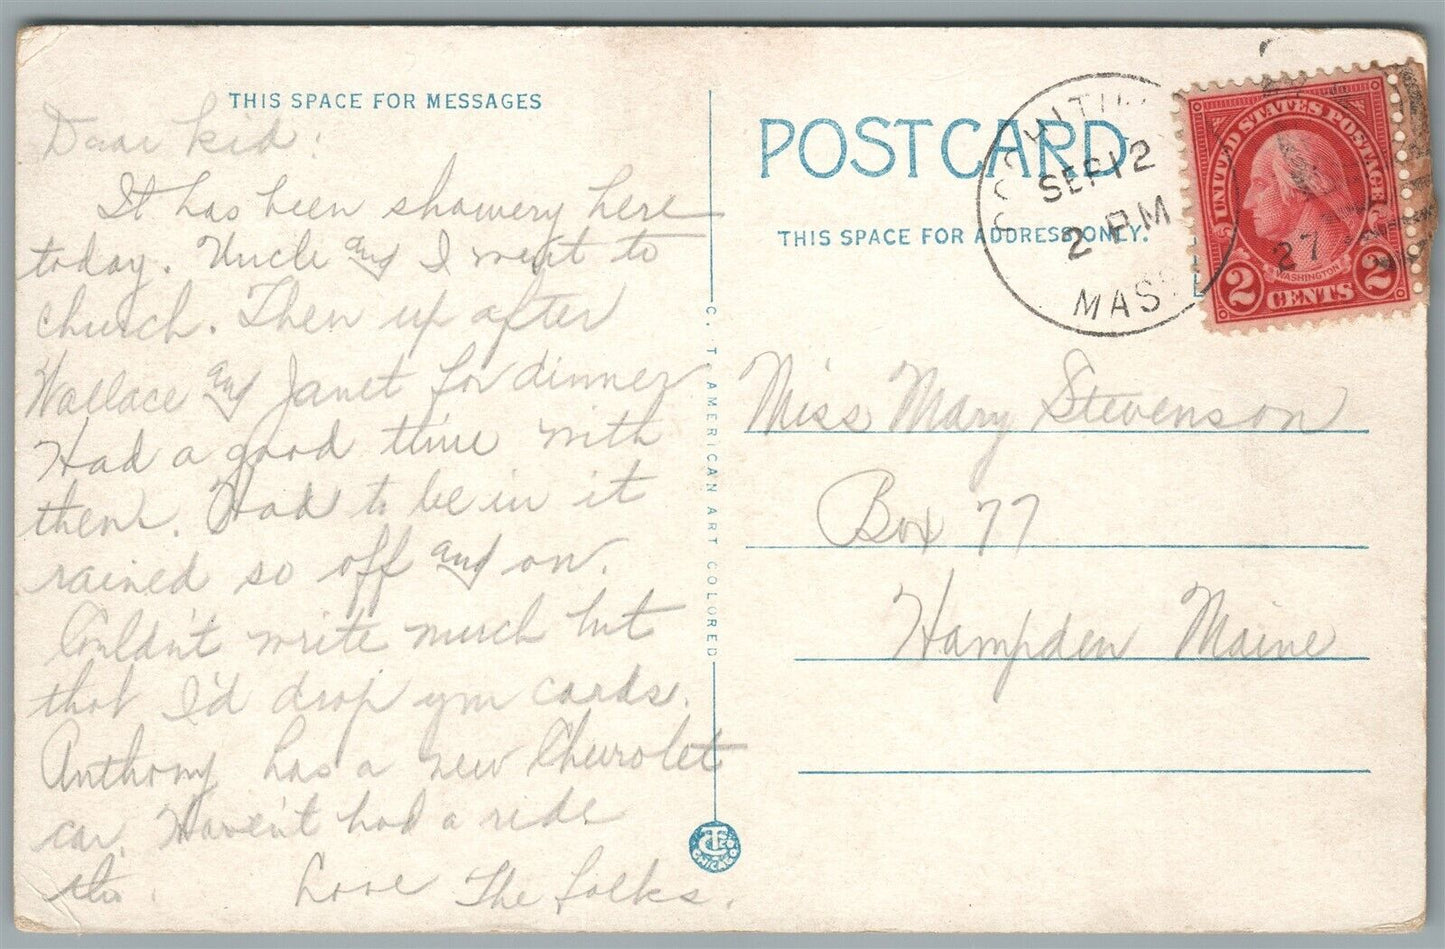 THIS SPACE FOR MESSAGES
Dear kid:
It has been showery here
today. Uncle and I went to
church. Then up after
Wallace and Janet for dinner
Had a good time with
them. Had to be in it
rained so off and on.
Couldn't write much but
that I'd drop you cards.
Anthony has a new Chevrolet
car. Haven't had a ride
Love The folks.
C. T. AMERICAN ART COLORED
CHICAGO
POST CARD
THIS SPACE FOR ADDRESS ONLY.
SEP 12
2 PM
27
MASS
UNITED STATES POSTAGE
WASHINGTON
2 CENTS 2
Miss Mary Stevenson
Box 77
Hampden Maine